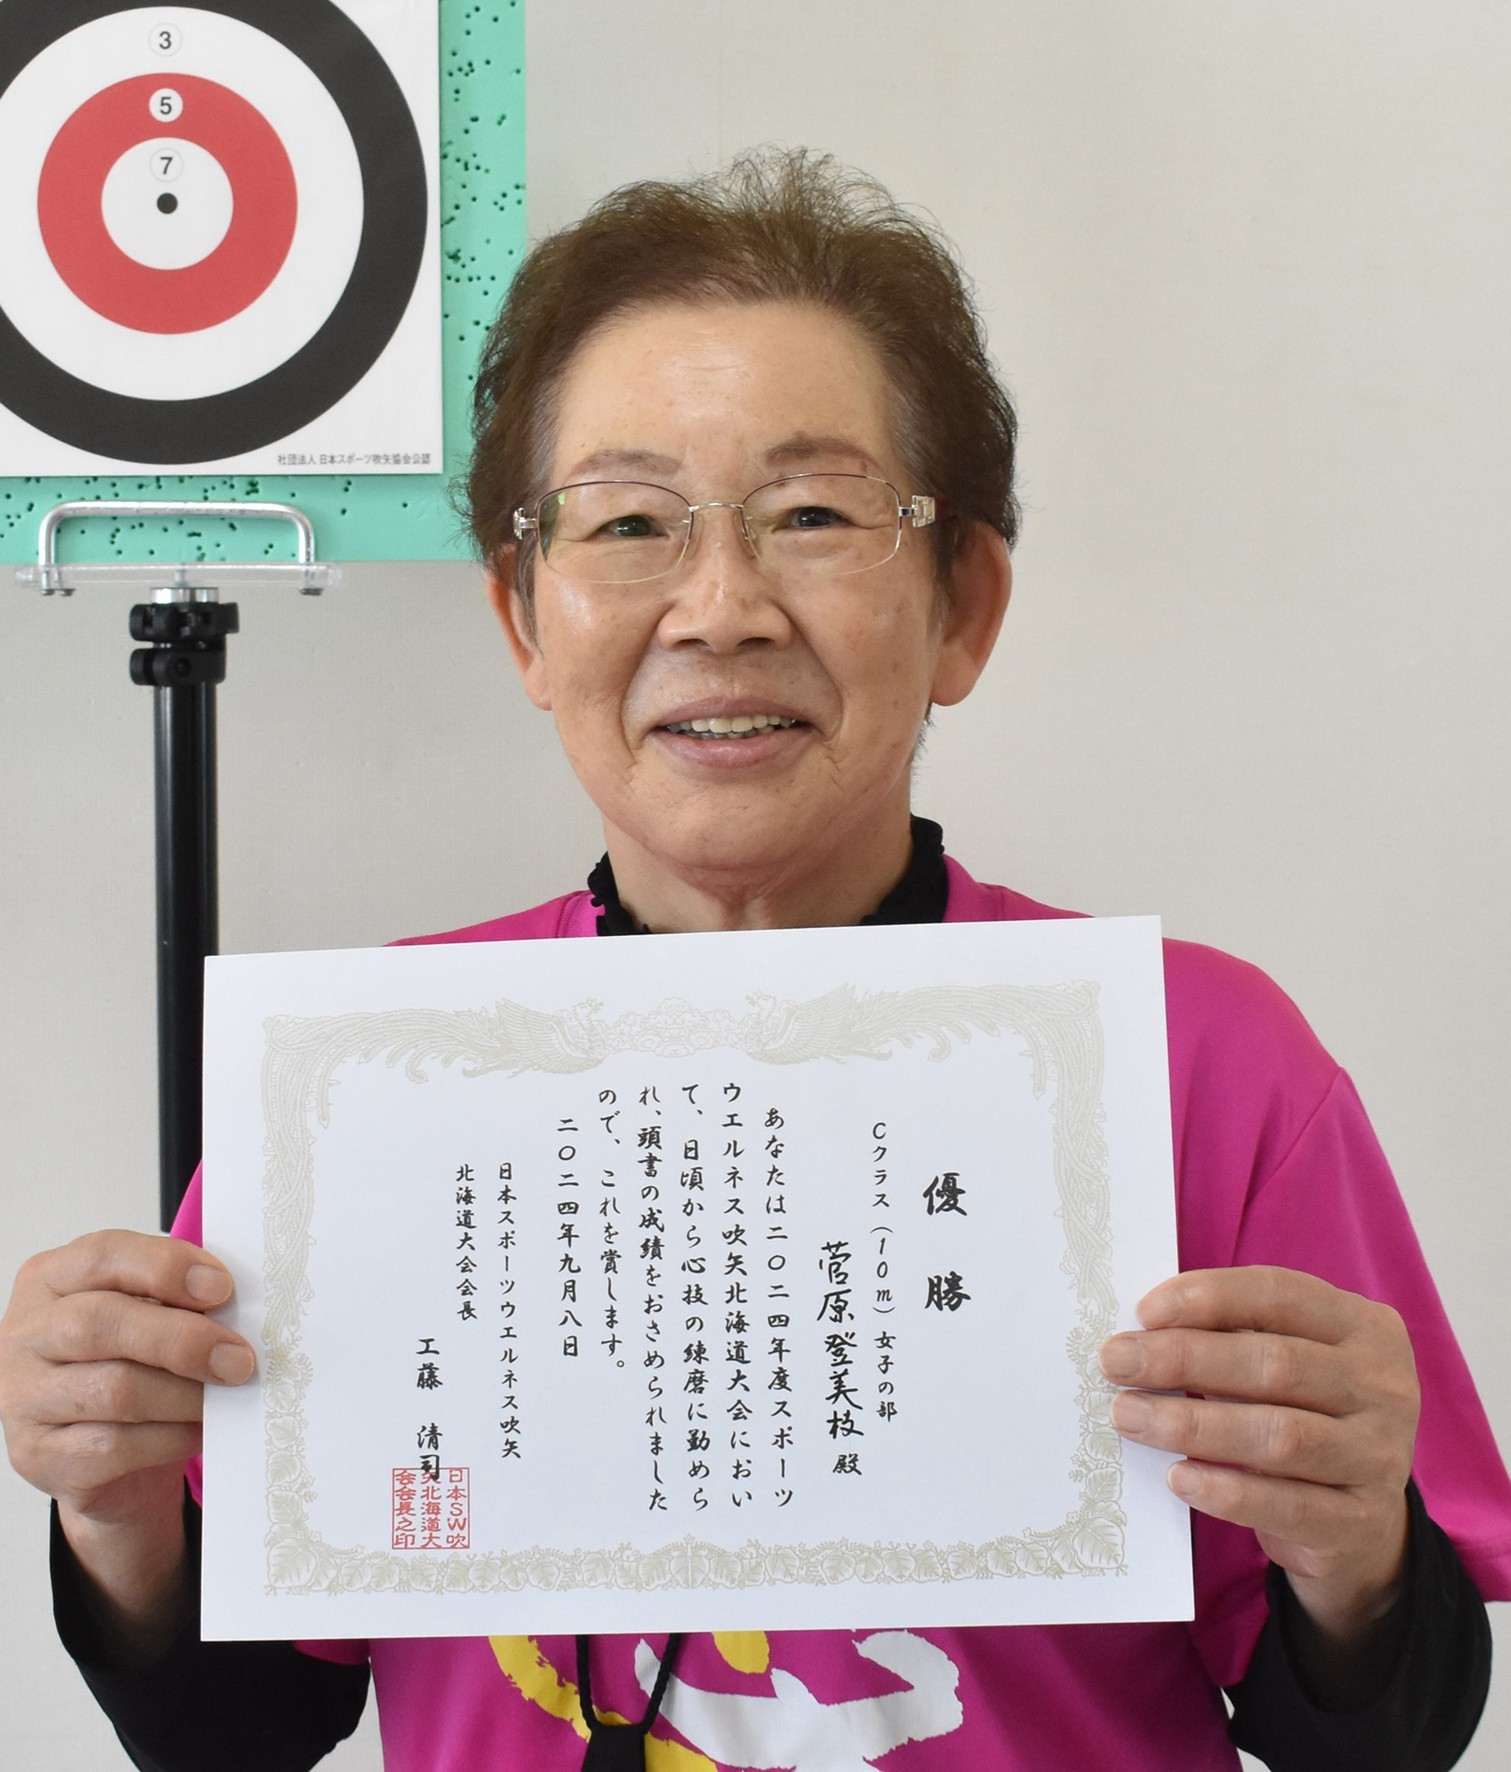 3
5
7
社団法人 日本スポーツ吹矢協会公認
優勝
Cクラス(10m)女子の部
菅原登美枝 殿
あなたは二〇二四年度スポーツ
ウエルネス吹矢北海道大会におい
て、日頃から心技の練磨に勤めら
れ、頭書の成績をおさめられました
ので、これを賞します。
二〇二四年九月八日
日本スポーツウエルネス吹矢
北海道大会会長
工藤 清司
日本SW吹
矢北海道大
会会長之印